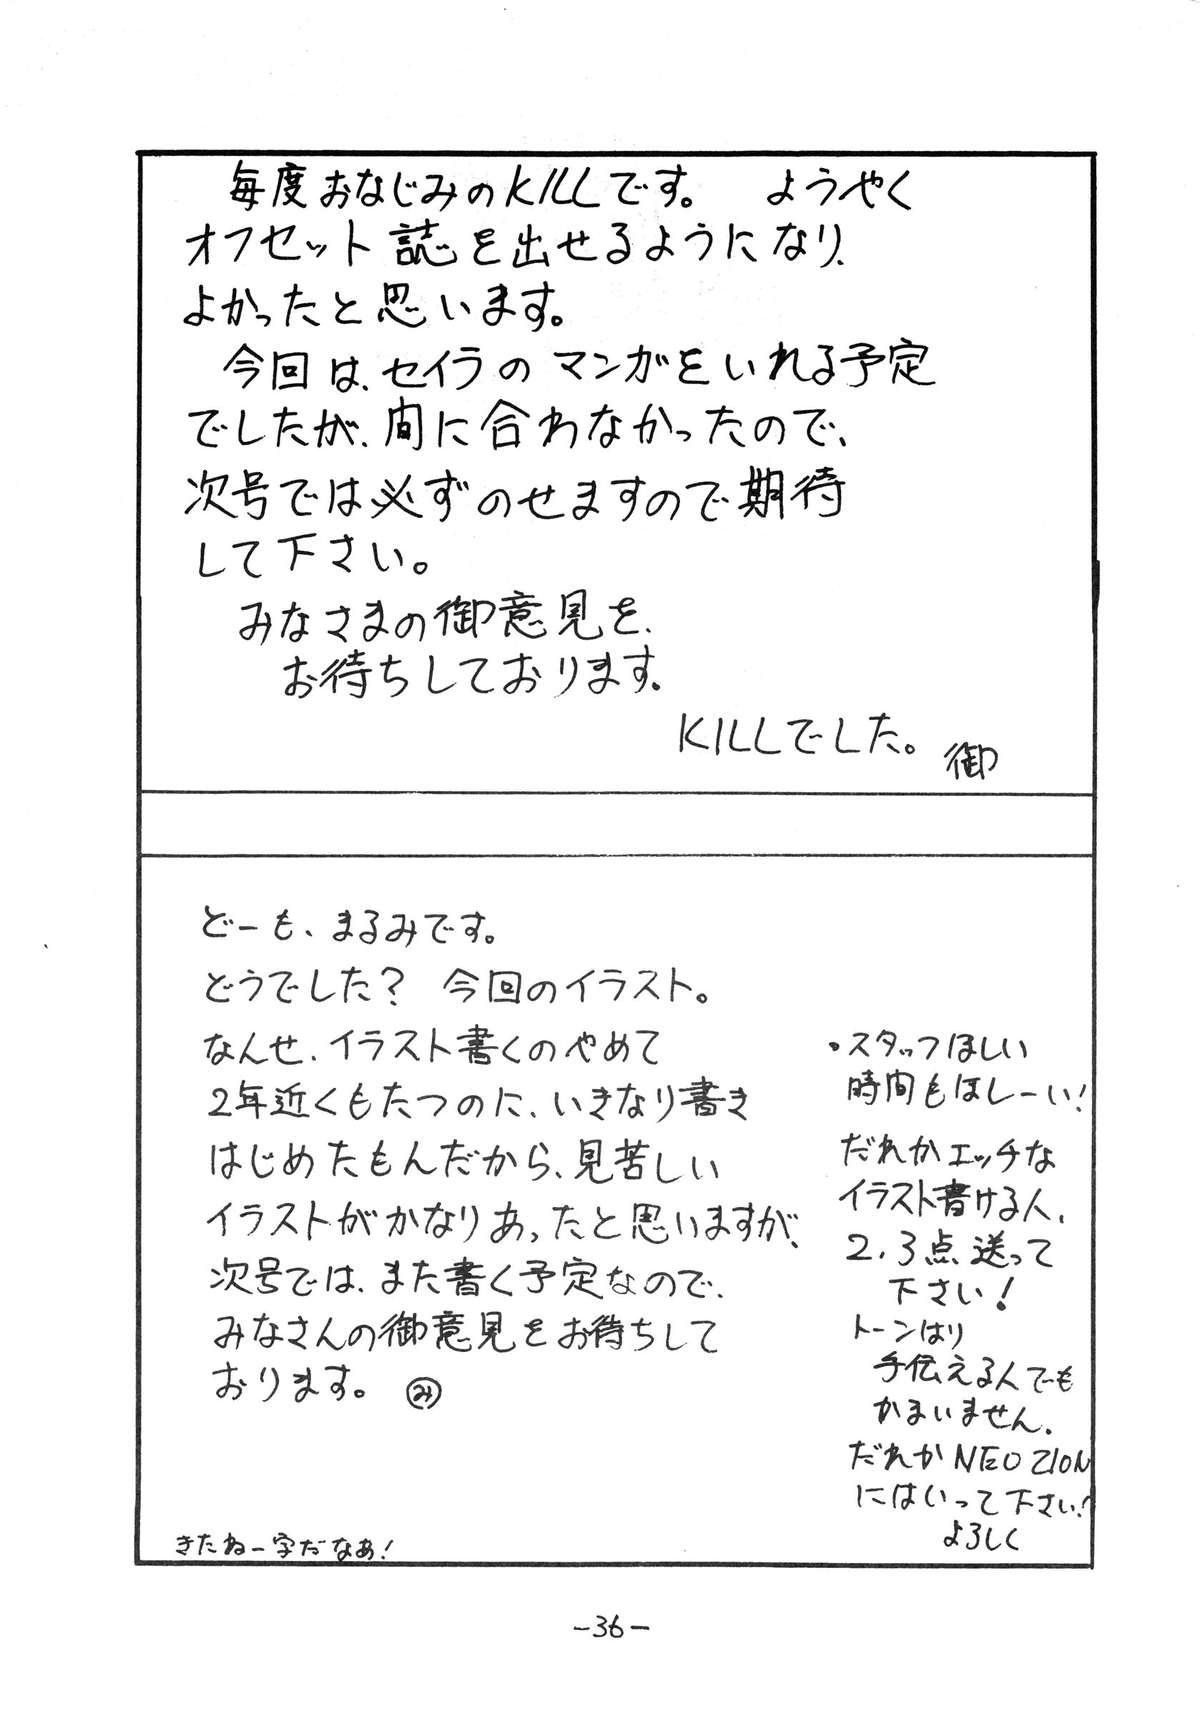 毎度おなじみのKILLです。 ようやく
オフセット誌を出せるようになり、
よかったと思います。
今回は、セイラのマンガをいれる予定
でしたが、間に合わなかったので、
次号では必ずのせますので期待
して下さい。
みなさまの御意見を、
お待ちしております。
KILLでした。 御
どーも、まるみです。
どうでした? 今回のイラスト。
なんせ、イラスト書くのやめて
2年近くもたつのに、いきなり書き
はじめたもんだから、見苦しい
イラストがかなりあったと思いますが、
次号では、また書く予定なので、
みなさんの御意見をお待ちして
おります。 み
きたねー字だなあ!
・スタッフほしい
時間もほしーい!
だれかエッチな
イラスト書ける人、
2、3点送って
下さい!
トーンはり
手伝える人でも
かまいません。
だれかNEO ZION
にはいって下さい!
よろしく
-36-